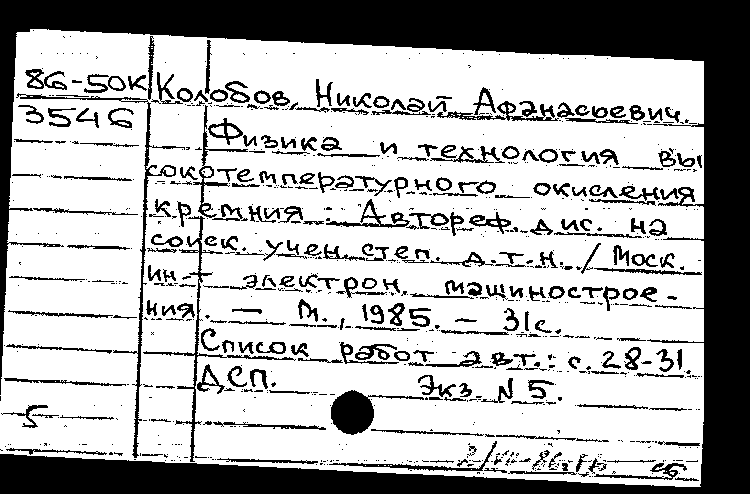 86-50К Колобов, Николай Афанасьевич.
3546
Физика и технология вы
сокотемпературного окисления
кремния : Автореф. дис. на
соиск. учен. степ. д.т.н. / Моск.
ин-т электрон. машинострое-
ния. — М., 1985. — 31с.
Список работ авт.: с. 28-31.
ДСП. Экз. N 5.
5